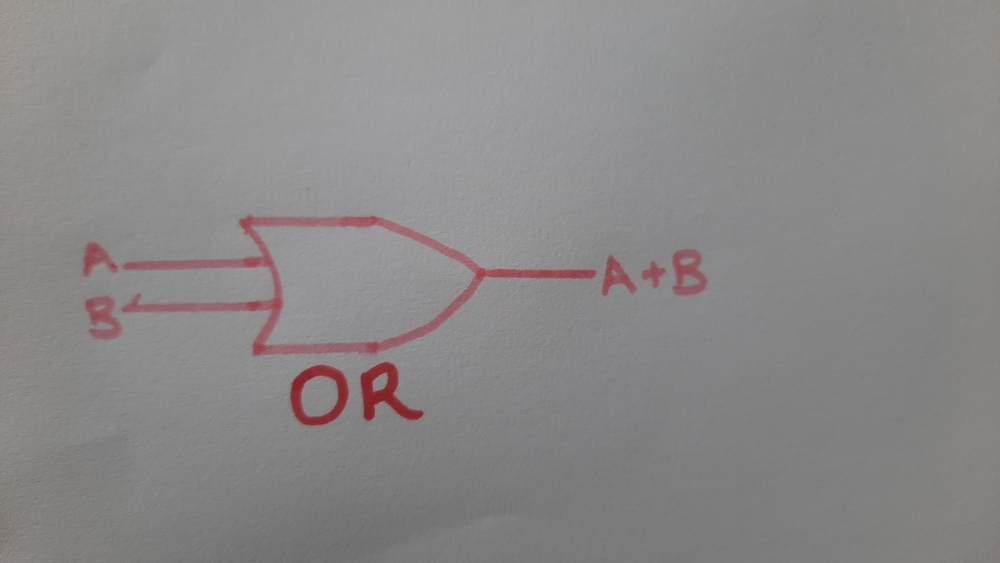 A
B
A+B
OR